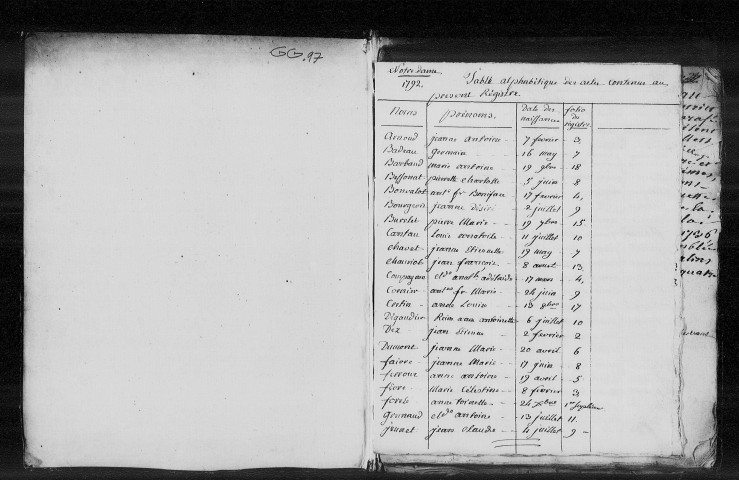 GG.97
Notre dame
1792.
Table alphabétique des actes contenus au
présent Régistre
Noms prénoms. Date des naissances folio du registre
Arnoud jeanne antoine 7 fevrier 3
Badeau germain 16 may 7
Barbaud marie antoine 19 9bre 18
Bessonat pierrette charlotte 5 juin 8
Bonvalot ant. fr Bonifau 17 fevrier 4
Bourgeois jeanne désiré 2 juillet 9
Burelet pierre Marie 19 7bre 15
Cantau Louis anatoile 11 juillet 10
chavet jeanne Etiennette 19 may 7
chauriot jean francois 8 aout 13
Compagne cl. anath. adélaide 17 mars 4
Cornier ant. fr Marie 24 juin 9
Cretin anne Louise 13 8bre 17
Digaudier Reine anne antoinette 6 juillet 10
Diz jean Etienne 2 fevrier 2
Dumont jeanne Marie 20 avril 6
faivre jeanne Marie 17 juin 8
ferroux anne antoine 19 avril 5
fevre Marie Celestine 8 fevrier 3
anne toinette 24 Xbre
cl. antoine 13 juillet 11
jeunet jean claude 4 juillet 9